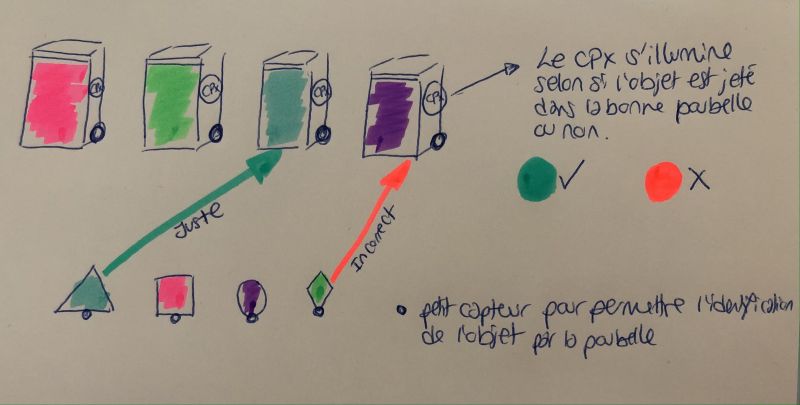 CPX
CPX
CPX
CPX
Le CPX s'illumine
selon si l'objet est jeté
dans la bonne poubelle
ou non.
Juste
Incorrect
petit capteur pour permettre l'identification
de l'objet par la poubelle